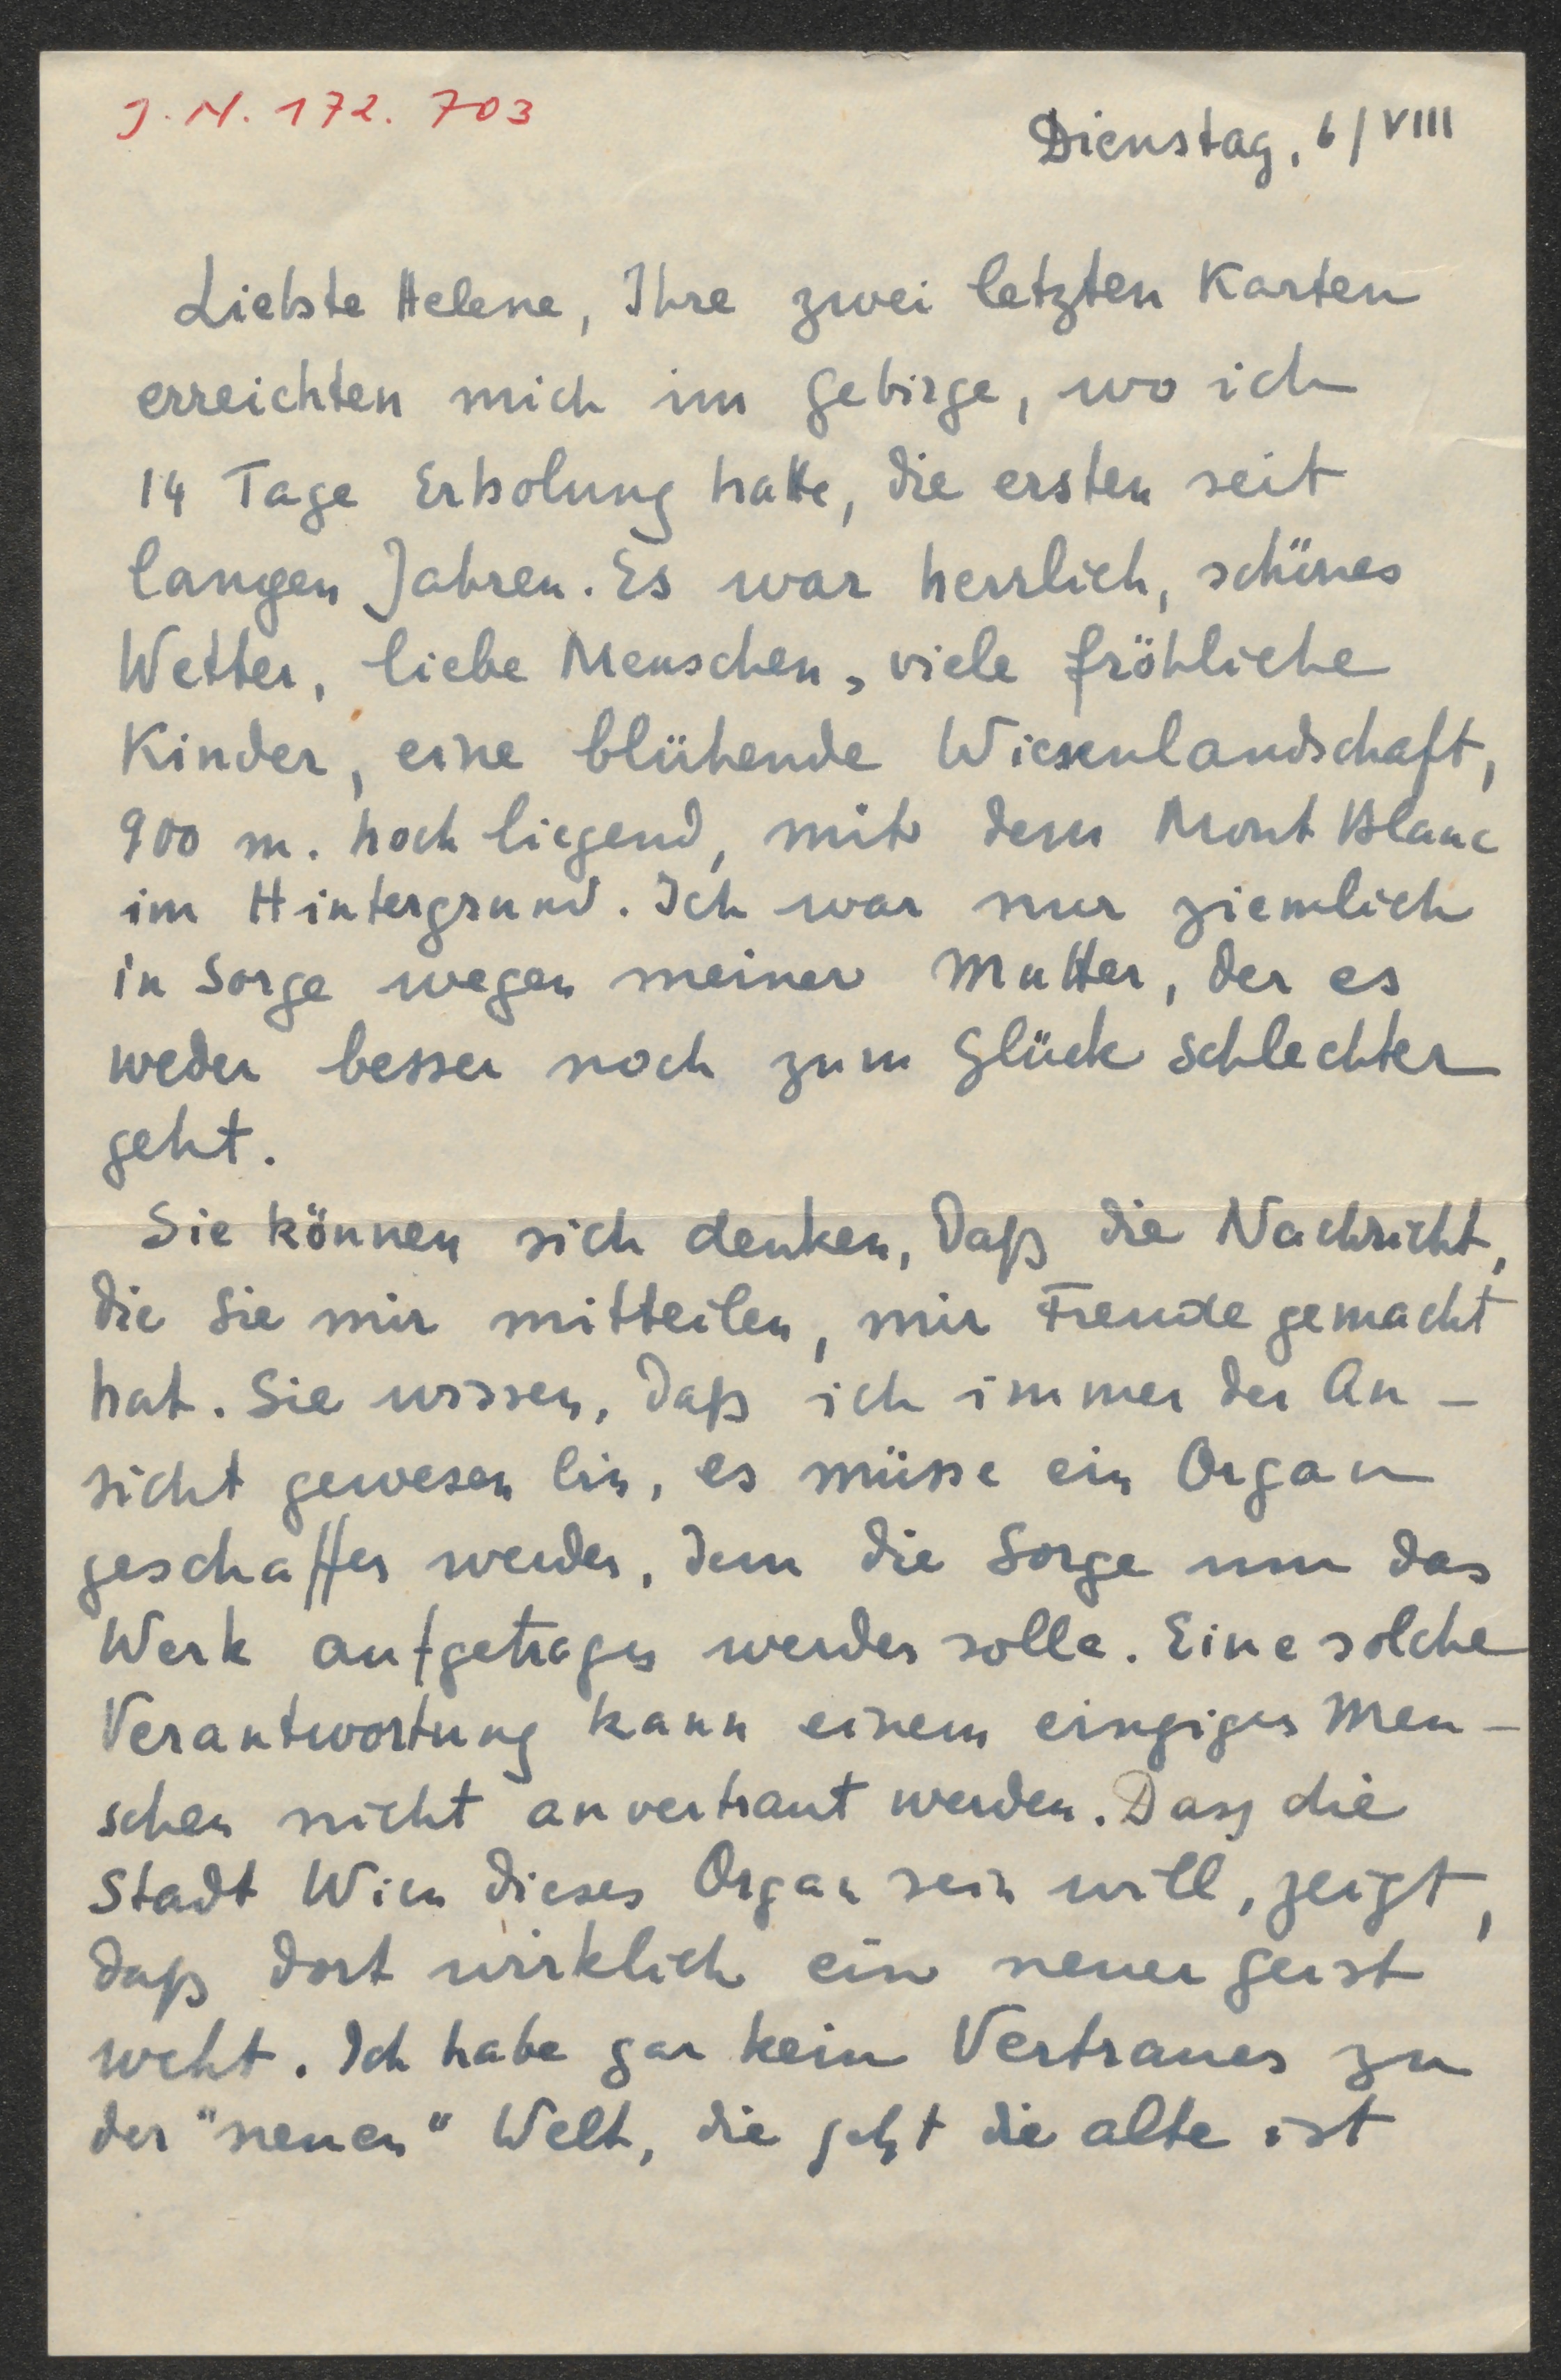 J. N. 172. 703
Dienstag, 6/VIII
Liebste Helene, Ihre zwei letzten Karten
erreichten mich im Gebirge, wo ich
14 Tage Erholung hatte, die ersten seit
langen Jahren. Es war herrlich, schönes
Wetter, liebe Menschen, viele fröhliche
Kinder, eine blühende Wiesenlandschaft,
900 m. hoch liegend, mit dem Mont Blanc
im Hintergrund. Ich war nur ziemlich
in Sorge wegen meiner Mutter, der es
weder besser noch zum Glück schlechter
geht.
Sie können sich denken, daß die Nachricht,
die Sie mir mitteilen, mir Freude gemacht
hat. Sie wissen, daß ich immer der An-
sicht gewesen bin, es müsse ein Organ
geschaffen werden, dem die Sorge um das
Werk aufgetragen werden solle. Eine solche
Verantwortung kann einem einzigen Men-
schen nicht anvertraut werden. Dass die
Stadt Wien dieses Organ sein will, zeigt,
daß dort wirklich ein neuer Geist
weht. Ich habe gar kein Vertrauen zu
der "neuen" Welt, die jetzt die alte ist